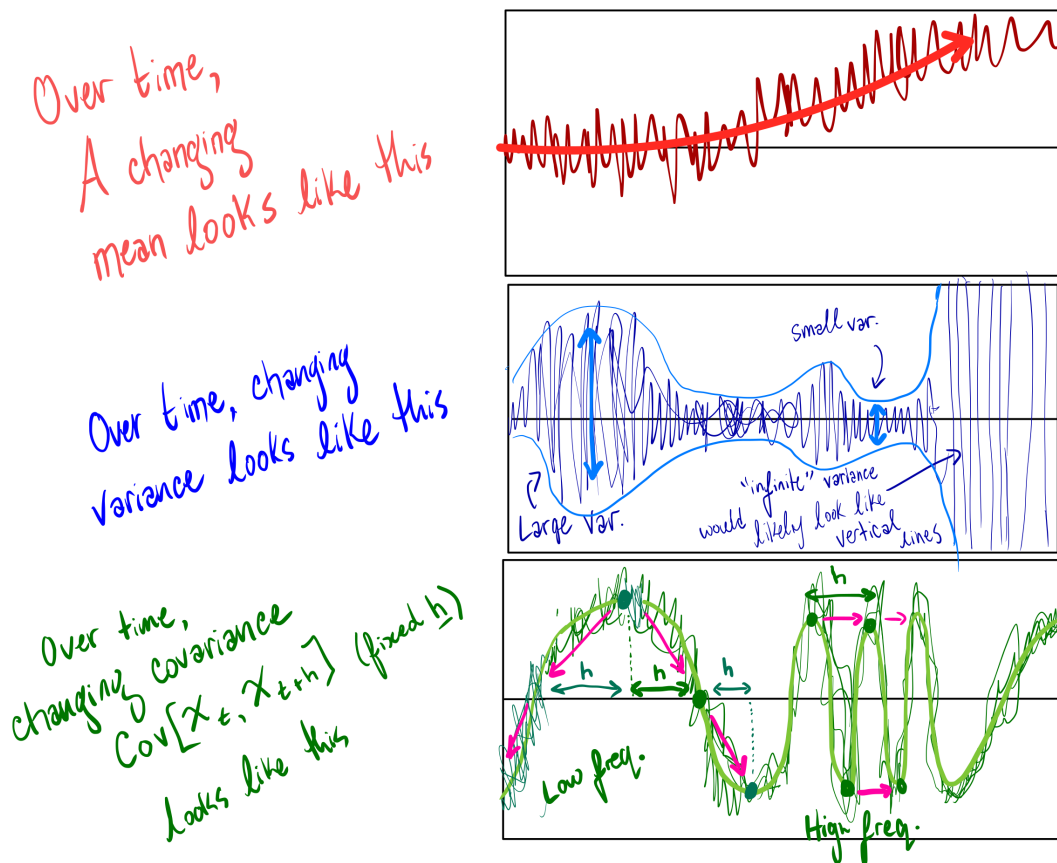 Over time,
A changing
mean looks like this
Over time, changing
variance looks like this
small var.
Large var.
"infinite" variance
would likely look like
vertical lines
Over time,
changing covariance
Cov[X_t, X_{t+h}] (fixed h)
looks like this
h
h
h
h
Low freq.
High freq.